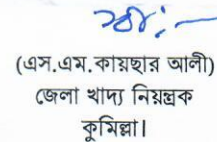 (এস.এম.কায়ছার আলী)
জেলা খাদ্য নিয়ন্ত্রক
কুমিল্লা।